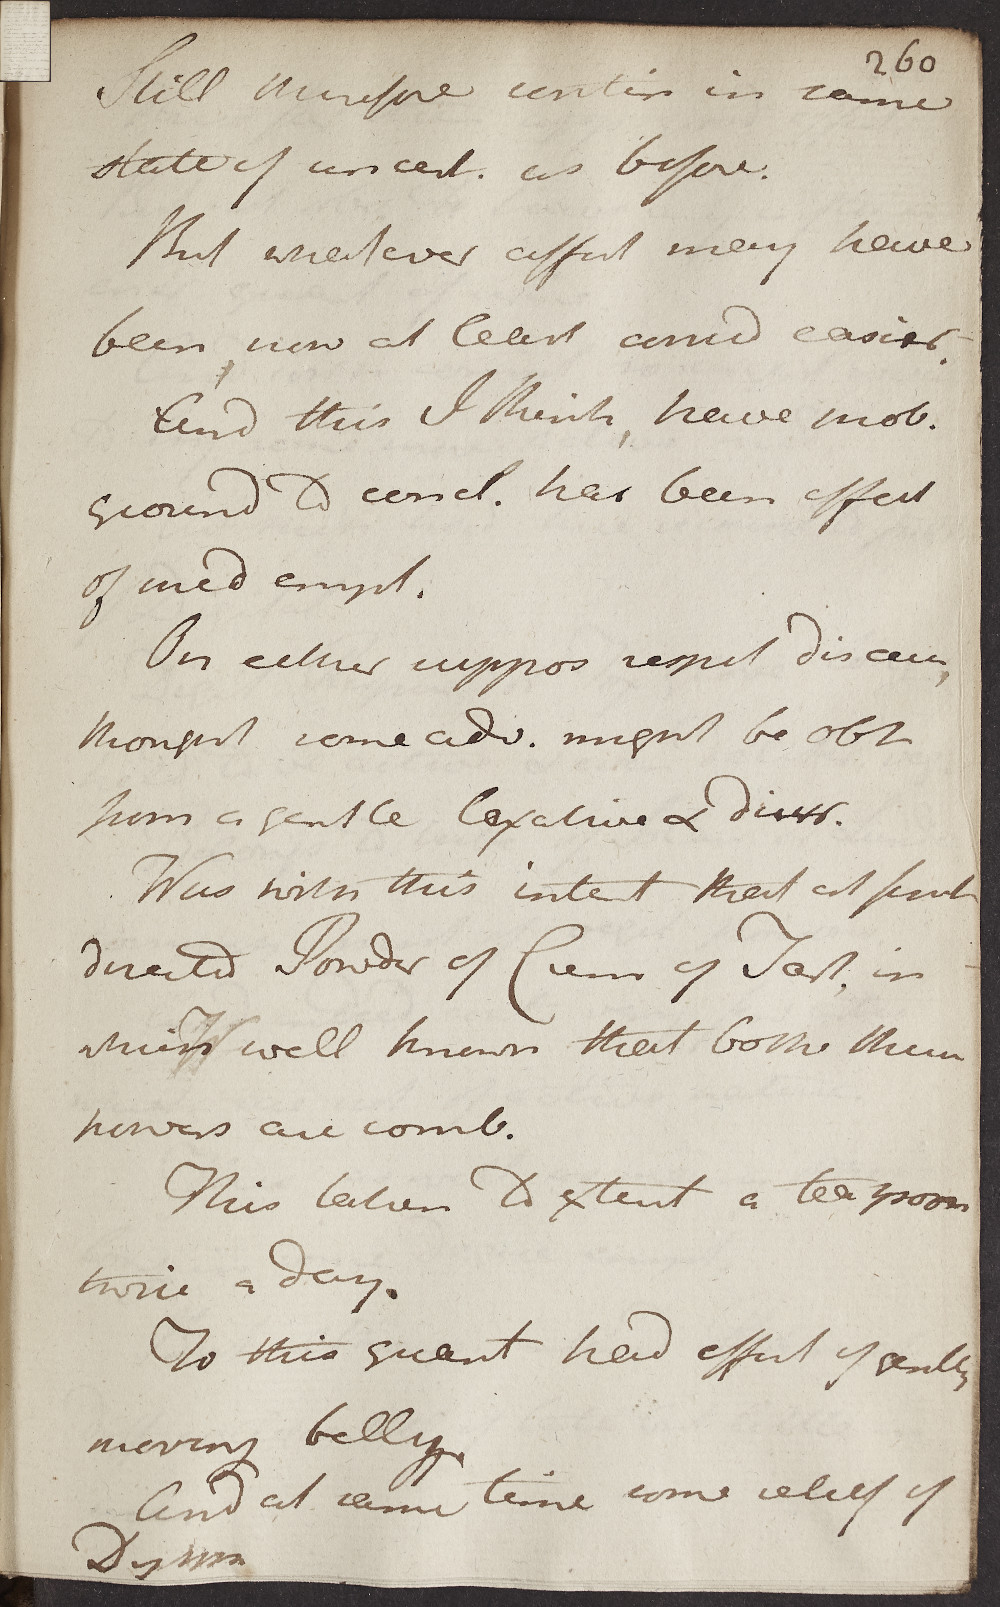 260
Still therefore contin in same
state of uncert. as before.
But whatever effect may have
been, now at least comd easier.
And this I think, have prob.
ground to concl. has been effect
of med empl.
On either suppos respect disease,
thought some adv. might be obt
from a gentle laxative & diur.
Was with this intent that at first
directed Powder of Crem of Tart, in
which well known that bothe these
powers are comb.
This taken to extent a tea spoon
twice a day.
In this quant had effect of gently
moving belly.
And at same time some relief of
Dyspn